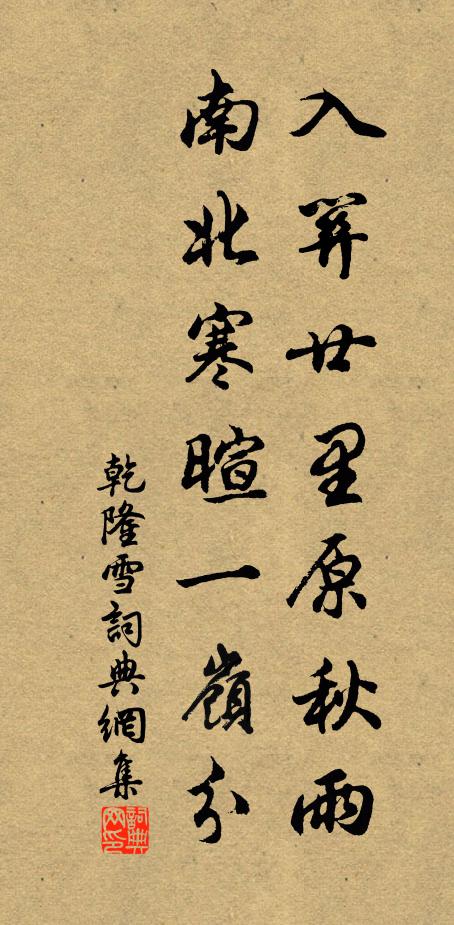 入筭廿里原秋雨
南北寒暄一嶺分
乾隆雪詞典網集
詞典网印